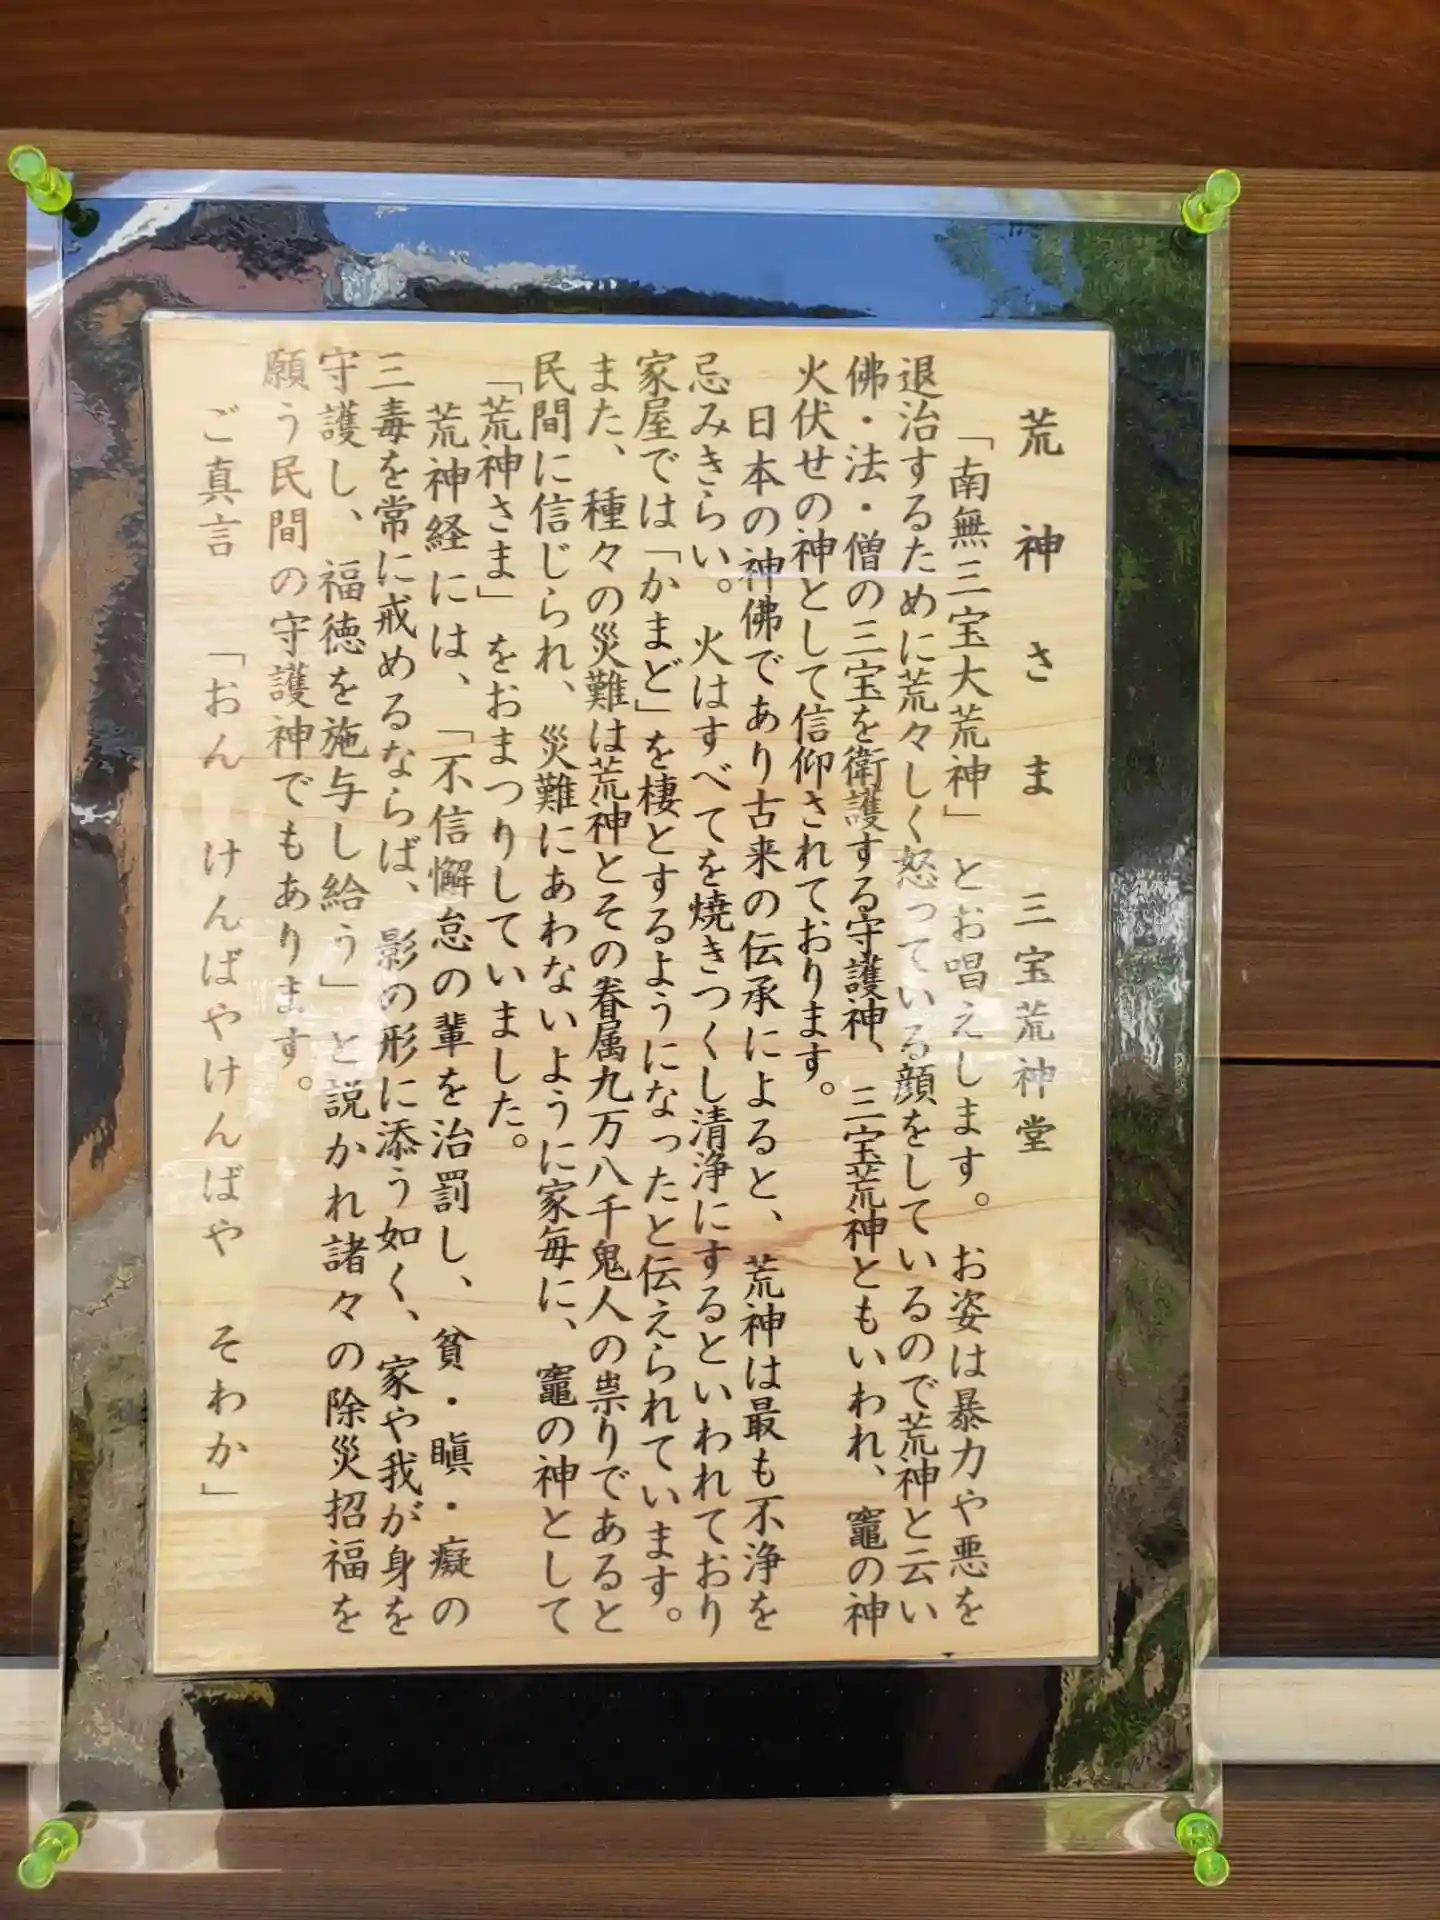 荒神さま 三宝荒神堂
「南無三宝大荒神」とお唱えします。お姿は暴力や悪を
退治するために荒々しく怒っている顔をしているので荒神と云い
佛・法・僧の三宝を衛護する守護神、三宝荒神ともいわれ、竈の神
火伏せの神として信仰されております。
日本の神佛であり古来の伝承によると、荒神は最も不浄を
忌みきらい。火はすべてを焼きつくし清浄にするといわれており
家屋では「かまど」を棲とするようになったと伝えられています。
また、種々の災難は荒神とその眷属九万八千鬼人の祟りであると
民間に信じられ、災難にあわないように家毎に、竈の神として
「荒神さま」をおまつりしていました。
荒神経には、「不信懈怠の輩を治罰し、貧・瞋・癡の
三毒を常に戒めるならば、影の形に添う如く、家や我が身を
守護し、福徳を施与し給う」と説かれ諸々の除災招福を
願う民間の守護神でもあります。
ご真言 「おん けんばやけんばや そわか」